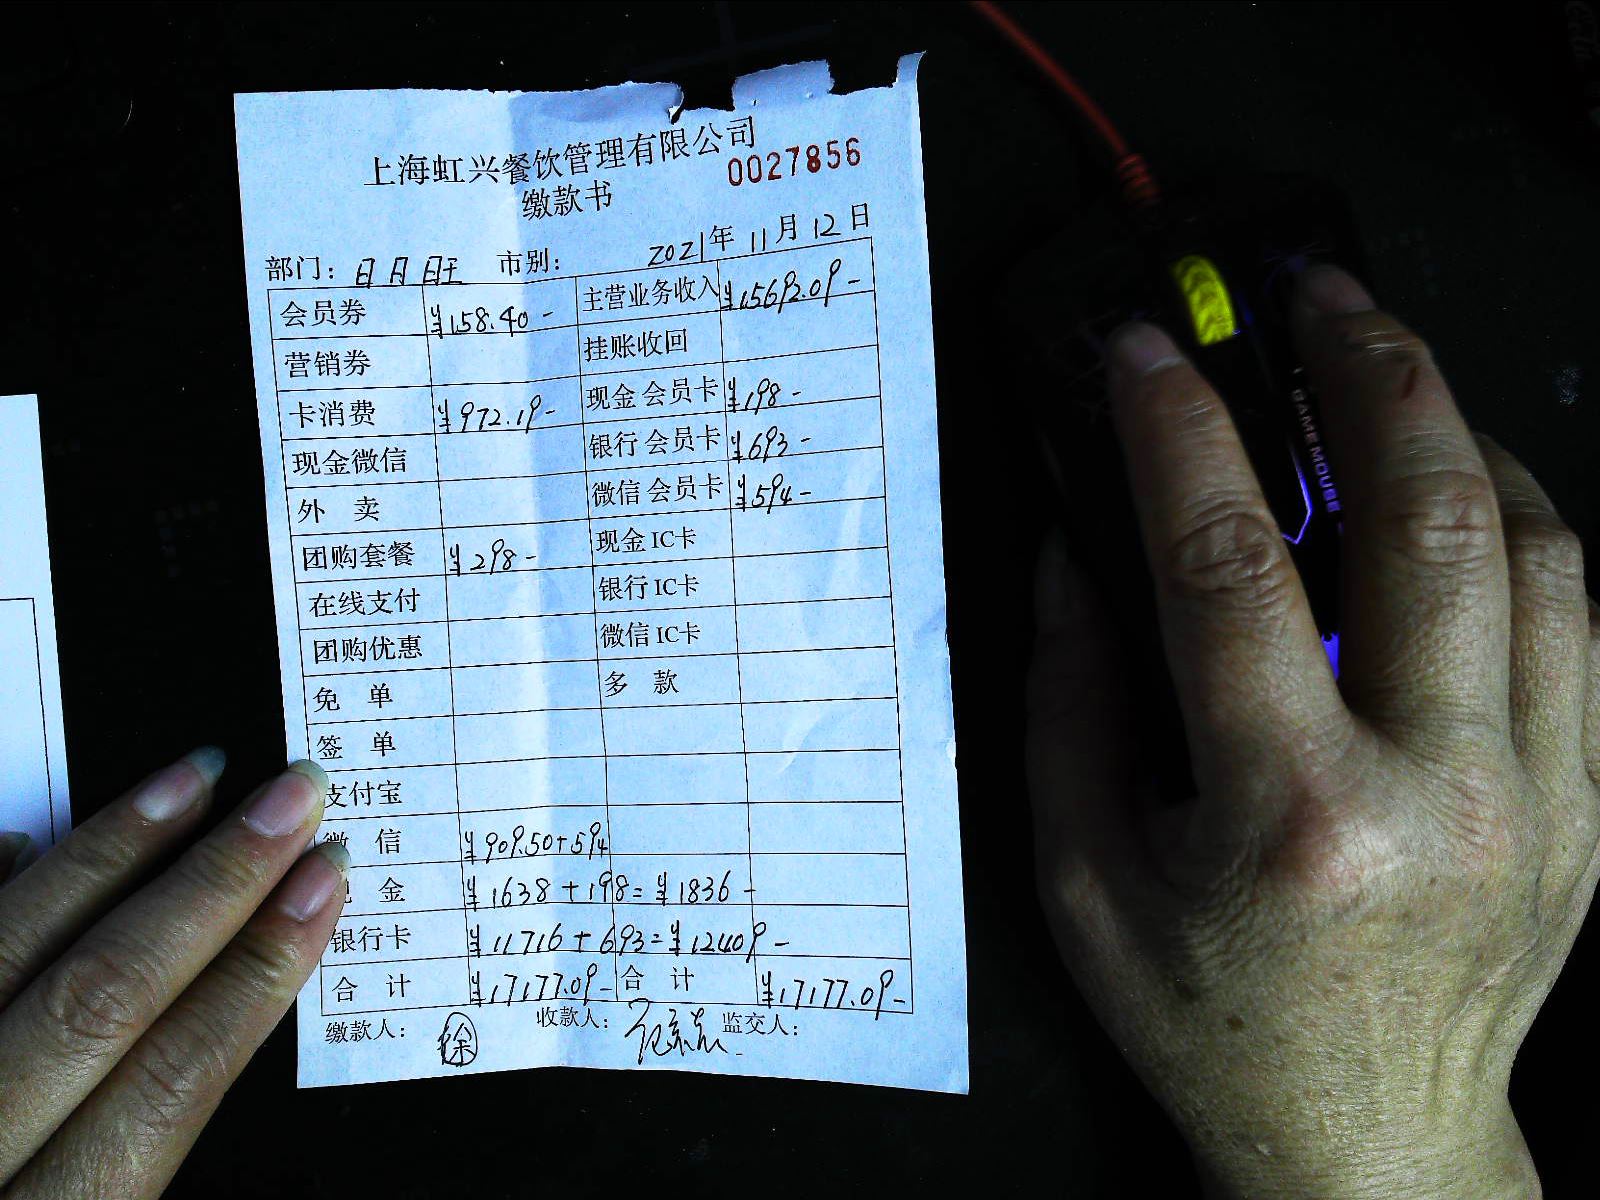 上海虹兴餐饮管理有限公司
0027856
缴款书
部门: 日月旺 市别: 2021年11月12日
会员券 ¥158.40- 主营业务收入 ¥15692.09-
营销券 挂账收回
卡消费 ¥972.19- 现金会员卡 ¥198-
现金微信 银行会员卡 ¥693-
外卖 微信会员卡 ¥594-
团购套餐 ¥298- 现金IC卡
在线支付 银行IC卡
团购优惠 微信IC卡
免单 多款
签单
支付宝
微信 ¥909.50+594
金 ¥1638+198=¥1836-
银行卡 ¥11716+693=¥12409-
合计 ¥17177.09- 合计 ¥17177.09-
缴款人: 徐 收款人: 监交人:
GAMEMOUSE